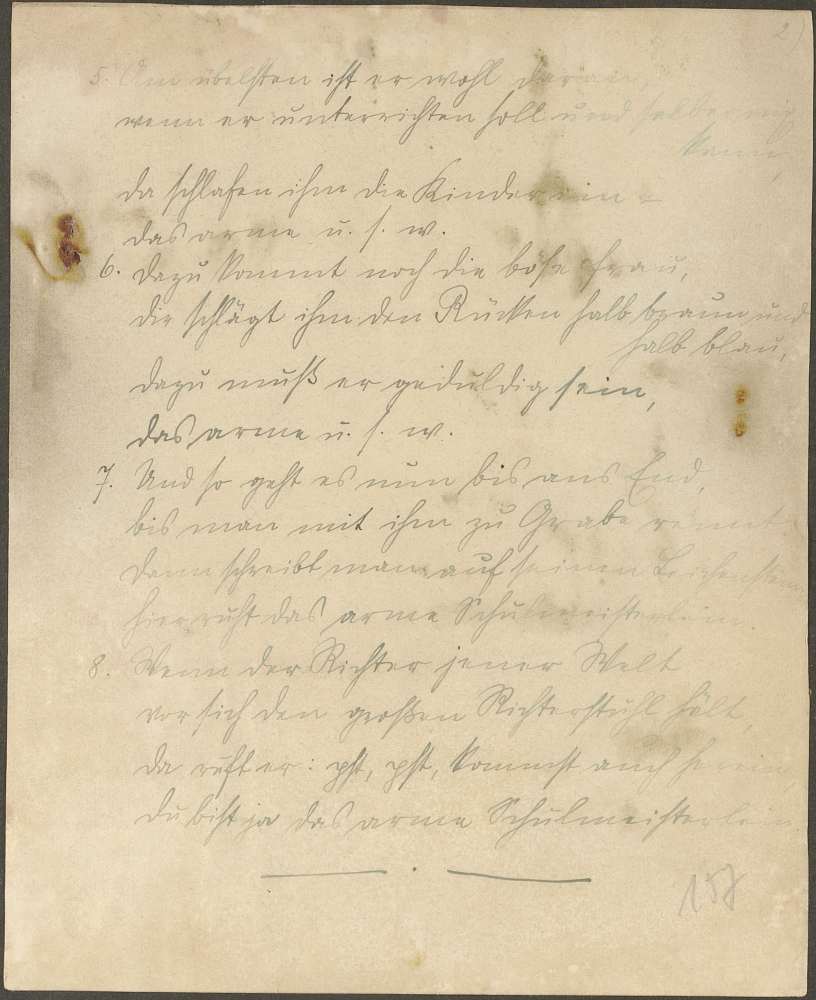 2)
5. Am übelsten ist er wohl daran,
wenn er unterrichten soll und selber nix
kann,
da schlafen ihm die Kinder ein –
das arme u. s. w.
6. Dazu kommt noch die böse Frau,
die schlägt ihm den Rücken halb braun und
halb blau,
dazu muß er geduldig sein,
das arme u. s. w.
7. Und so geht es nun bis ans End,
bis man mit ihm zu Grabe rennt
dann schreibt man auf seinen Leichenstein
hier ruht das arme Schulmeisterlein.
8. Wenn der Richter jener Welt
vor sich den großen Richterstuhl hält,
da ruft er: pst, pst, kommst auch herein,
du bist ja das arme Schulmeisterlein.
157